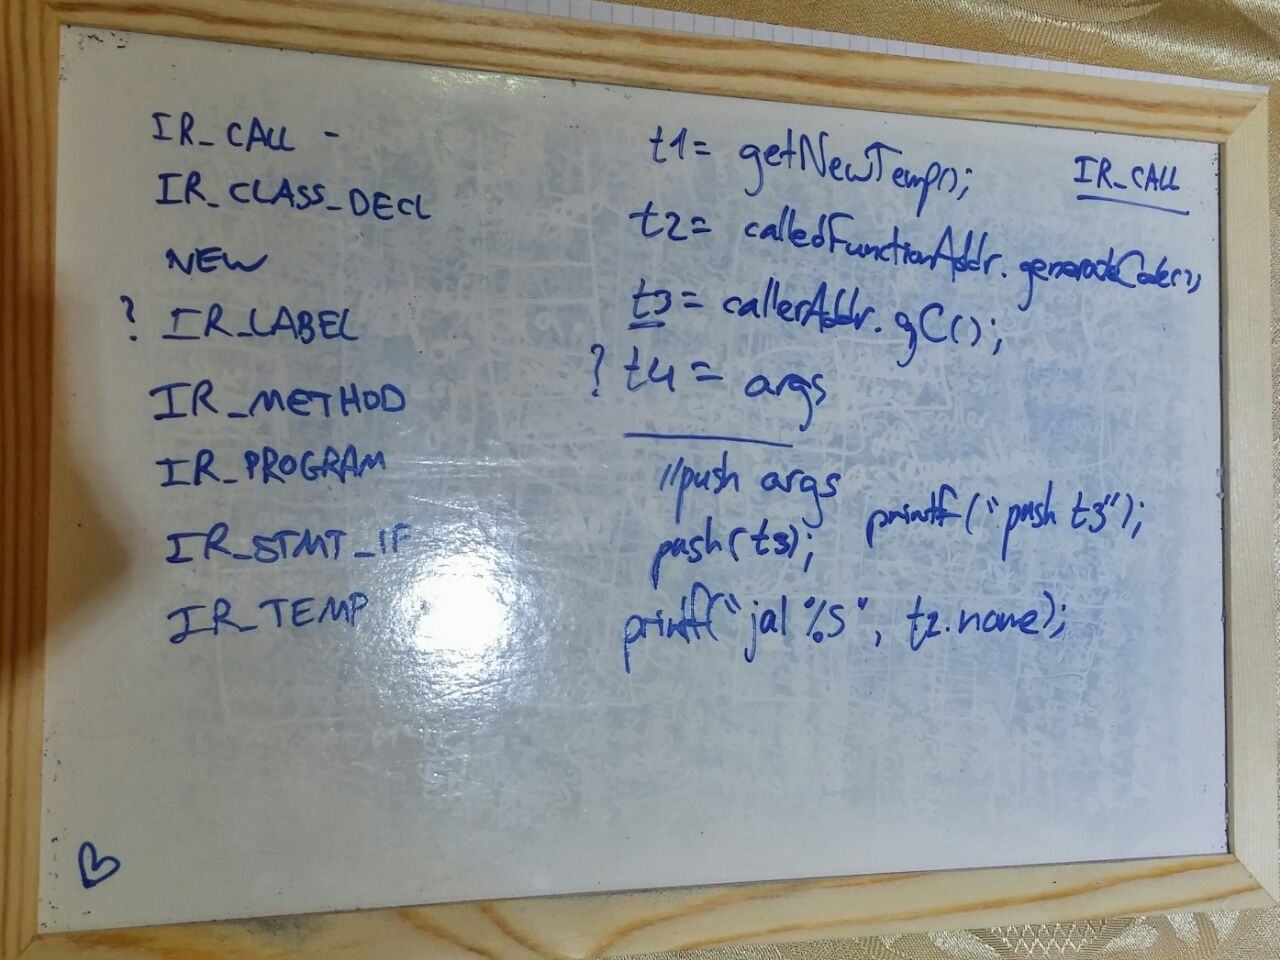 IR_CALL -
IR_CLASS_DECL
NEW
? IR_LABEL
IR_METHOD
IR_PROGRAM
IR_STMT_IF
IR_TEMP
IR_CALL
t1= getNewTemp();
t2= calledFunctionAddr.generateCode();
t3= callerAddr.gC();
? t4= args
//push args
push(t3); printf("push t3");
printf("jal %s", t2.name);